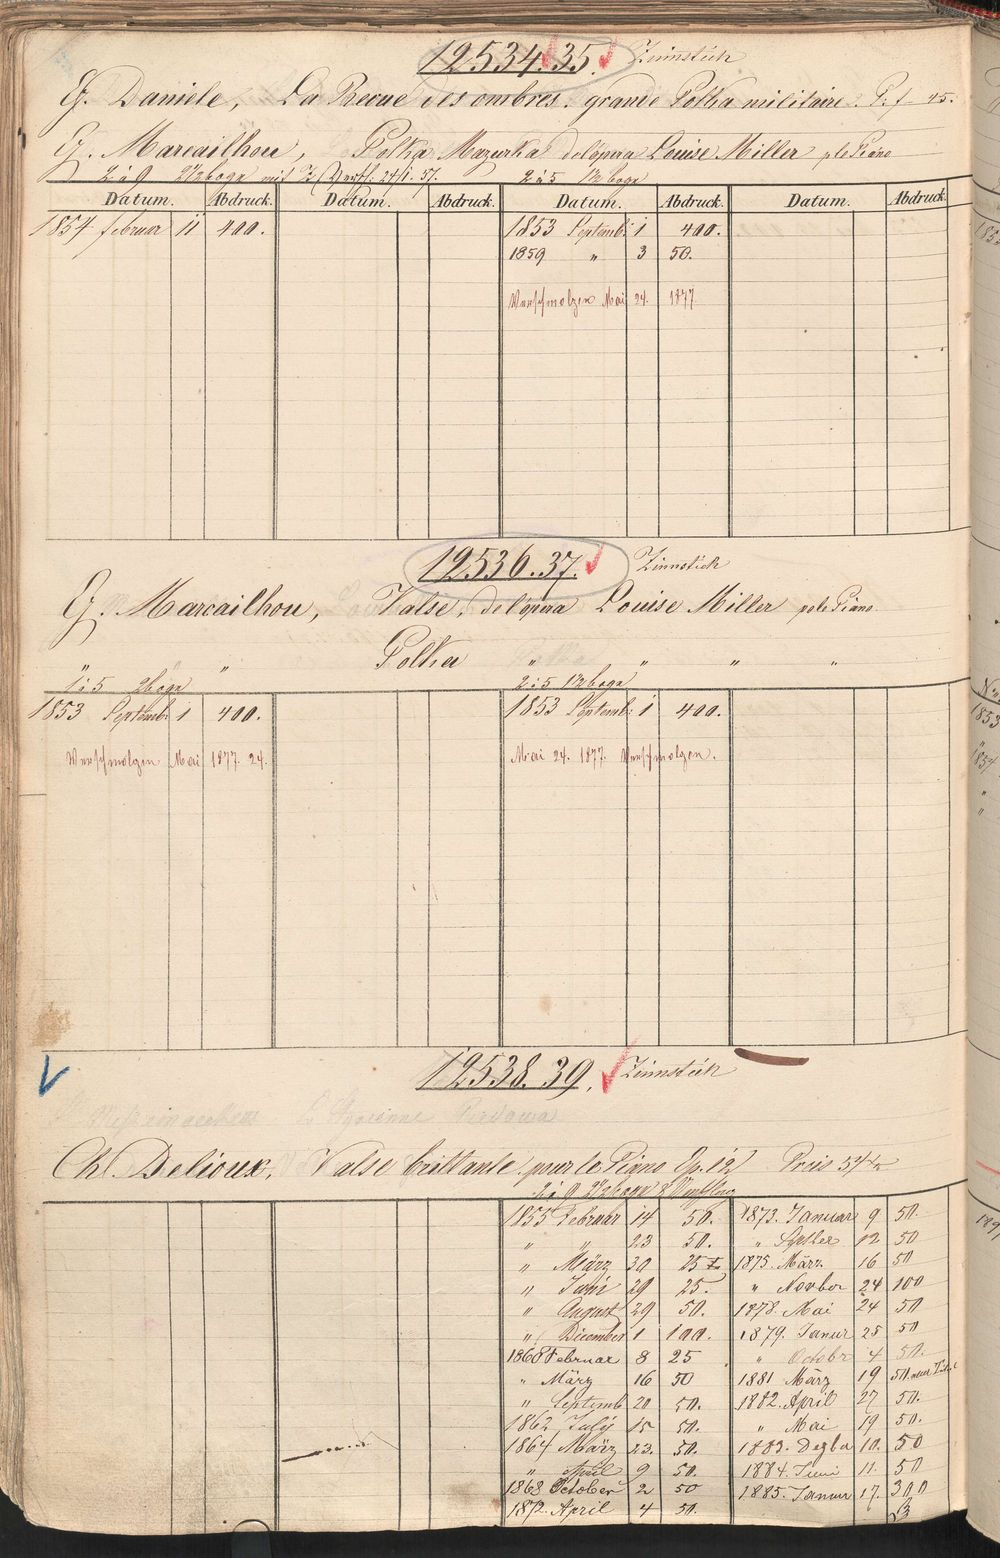 12534.35. Zinnstich
G. Daniele, La Revue des ombres. grande Polka militaire. Pr. f. 45.
G. Marcailhou, Polka Mazurka de l'opera Louise Miller p le Piano
2 à 9 2 1/2 boga mit 2 à 5 1 1/2 boga
Datum. Abdruck. Datum. Abdruck. Datum. Abdruck. Datum. Abdruck.
1854 februar 11 400. 1853 Septemb: 1 400.
1859 " 3 50.
Verschmolzen Mai 24. 1877.
12536.37. Zinnstich
G. Marcailhou, Valse, de l'opera Louise Miller p le Piano
" " " Polka " " " "
1 à 5 2 boga 2 à 5 1 1/2 boga
1853 Septemb: 1 400. 1853 Septemb: 1 400.
Verschmolzen Mai 1877. 24. Mai 24. 1877. Verschmolzen.
12538.39. Zinnstich
Ch. Delioux, Valse brillante pour le Piano Op. 12 Preis 54 x
2 à 9 2 1/2 boga
1855 Februar 14 50. 1873. Januar 9 50.
" " 23 50. " Septber 12 50
" März 30 25 1875. März. 16 50
" Juni 29 25. " Novber 24 100
" August 29 50. 1878. Mai 24 50
" December 1 100. 1879. Januar 25 50
1860 Februar 8 25 " Octobr 4 50.
" März 16 50 1881 März 19 50.
" Septemb 20 50. 1882. April 27 50.
1862 July 15 50. " Mai 19 50.
1864 März 23. 50. 1883. Dezbr 10. 50
" April 9 50. 1884. Juni 11. 50
1868 October 2 50 1885. Januar 17. 300
1872. April 4 50.